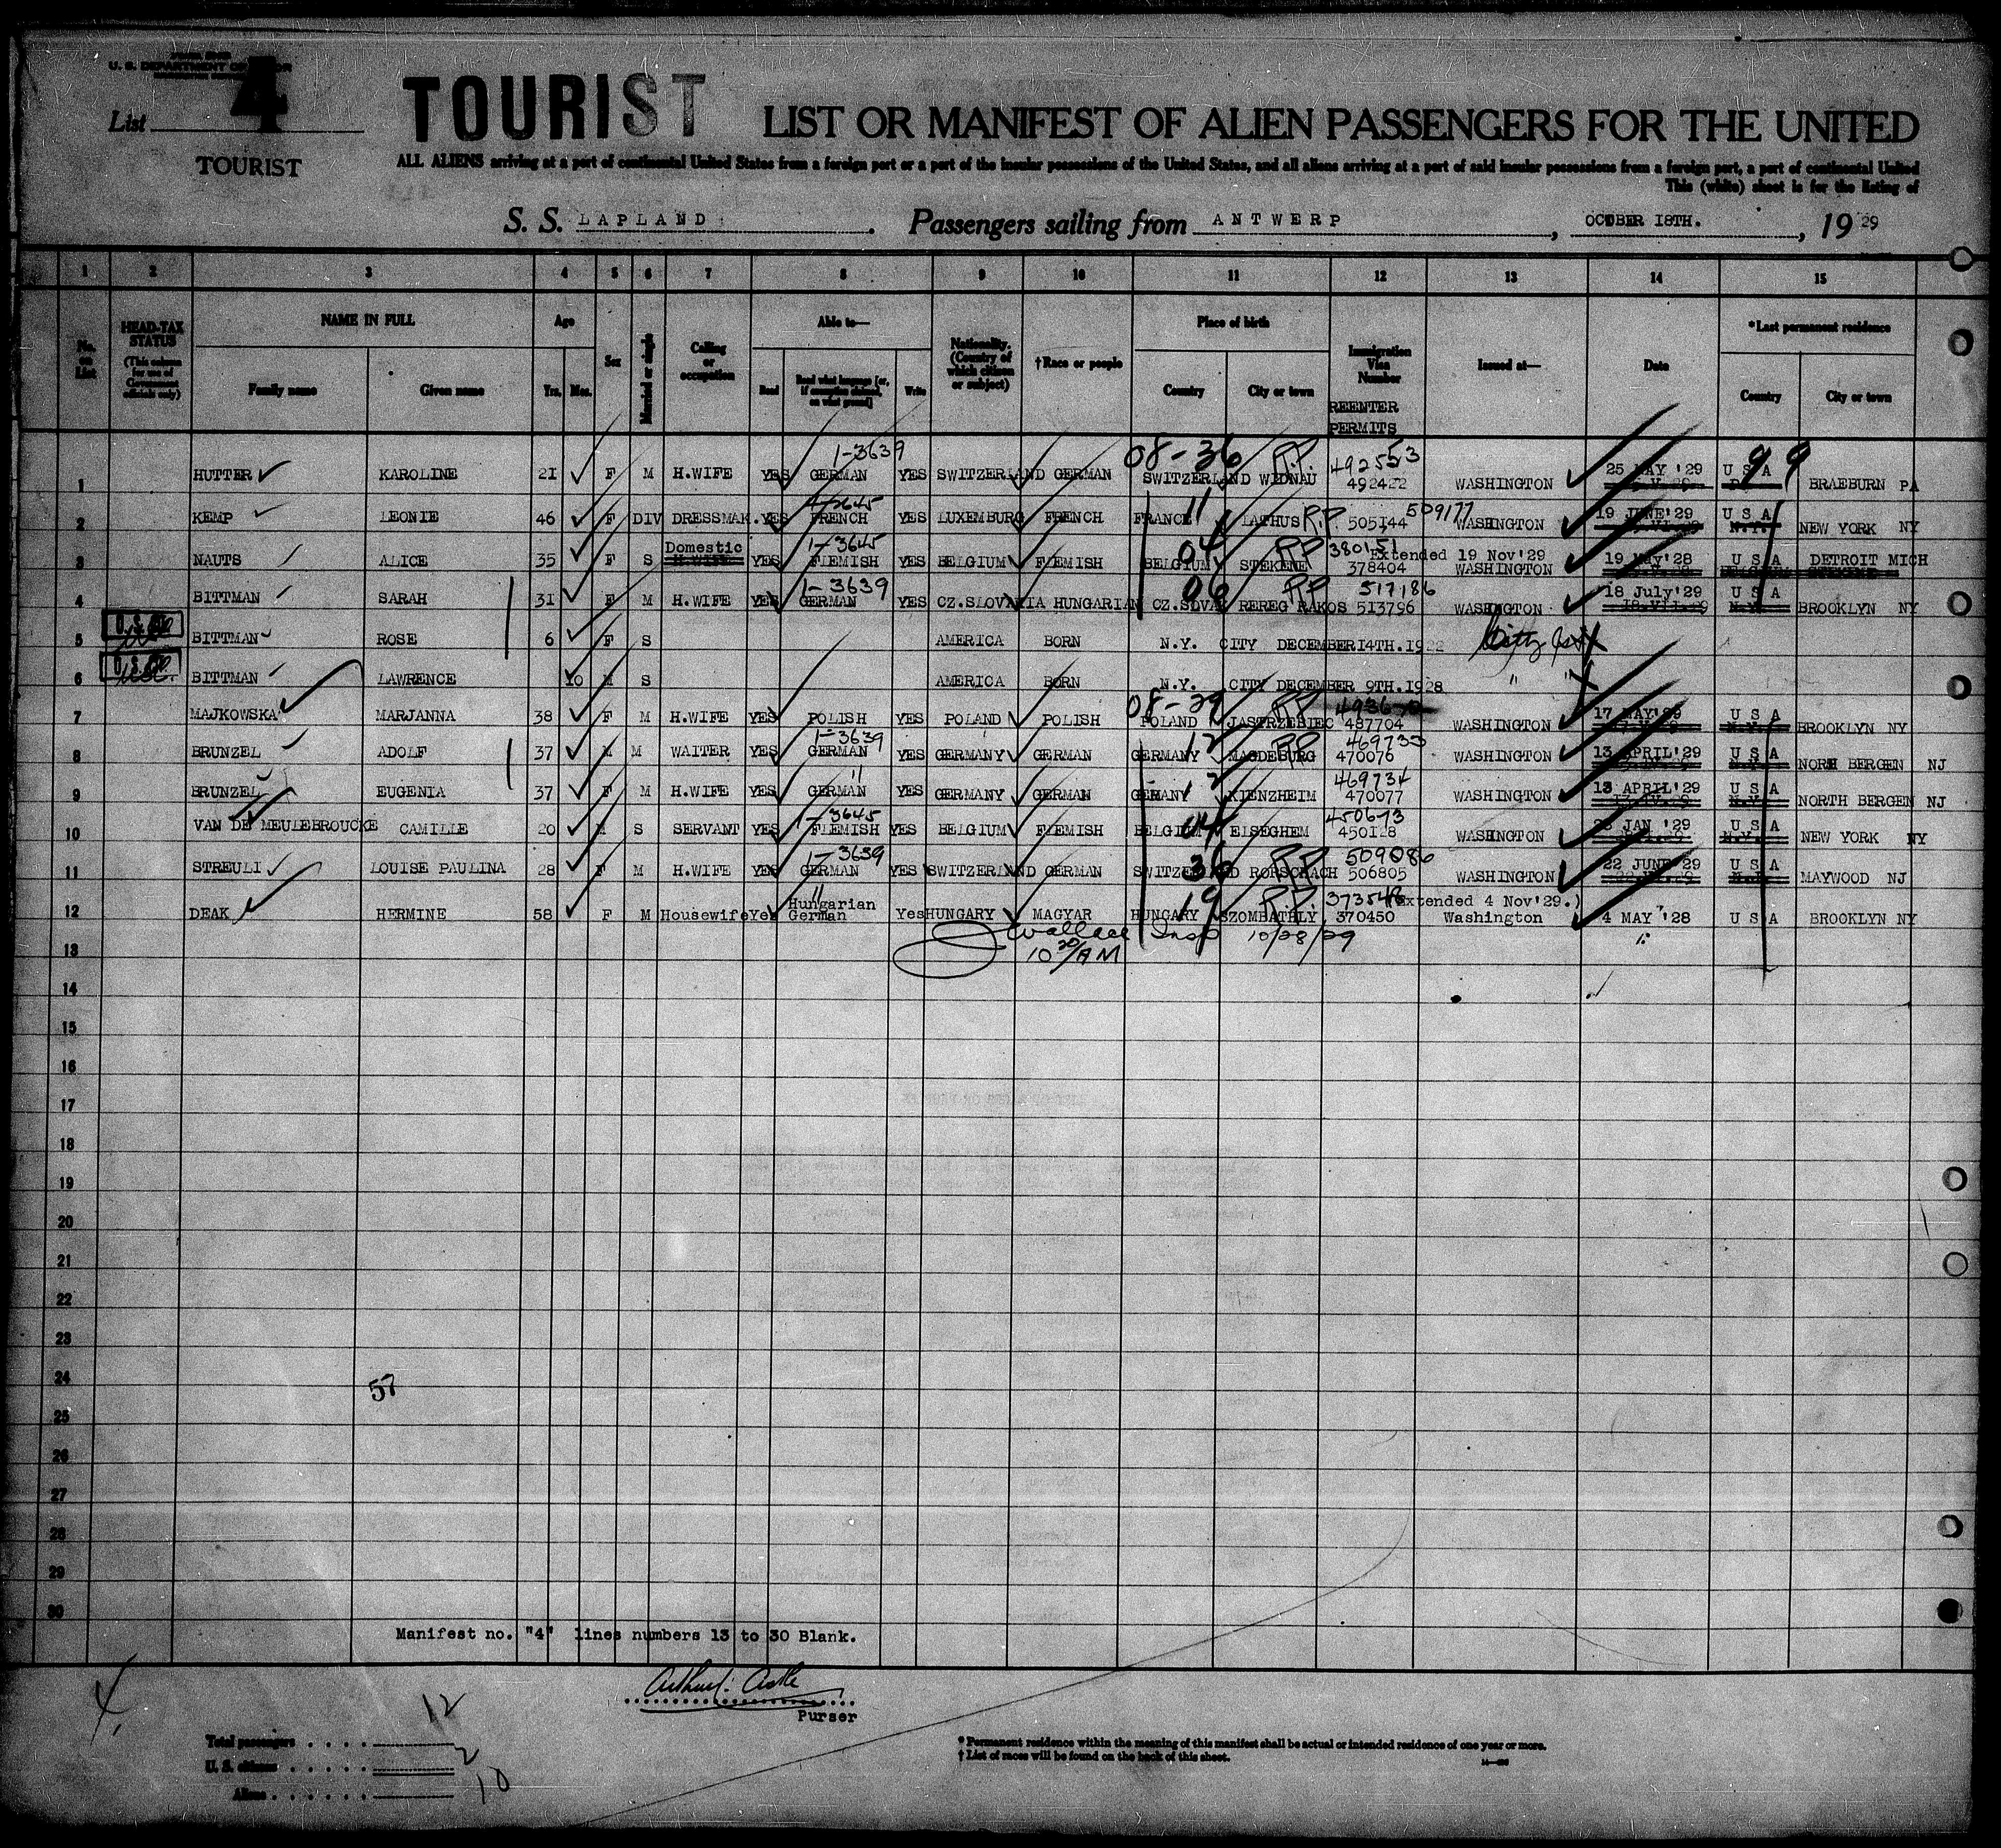 U. S. DEPARTMENT OF LABOR
List 4
TOURIST
TOURIST LIST OR MANIFEST OF ALIEN PASSENGERS FOR THE UNITED
ALL ALIENS arriving at a port of continental United States from a foreign port or a port of the insular possessions of the United States, and all aliens arriving at a port of said insular possessions from a foreign port, a port of continental United
This (white) sheet is for the listing of
S. S. LAPLAND. Passengers sailing from ANTWERP, OCTOBER 18TH., 1929
1 2 3 4 5 6 7 8 9 10 11 12 13 14 15
No. on List
HEAD-TAX STATUS (This column for use of Government officials only)
NAME IN FULL
Family name Given name
Age
Yrs. Mos.
Sex
Married or single
Calling or occupation
Able to—
Read Read what language [or, if exemption claimed, on what ground] Write
Nationality. (Country of which citizen or subject)
† Race or people
Place of birth
Country City or town
Immigration Visa Number
REENTER PERMITS
Issued at—
Date
* Last permanent residence
Country City or town
1-3639 08-36 R.P. 492553 99
1 HUTTER KAROLINE 21 F M H.WIFE YES GERMAN YES SWITZERLAND GERMAN SWITZERLAND WIDNAU 492422 WASHINGTON 25 MAY '29 U S A BRAEBURN PA
1-3645 11 R.P. 509177
2 KEMP LEONIE 46 F DIV DRESSMAK. YES FRENCH YES LUXEMBURG FRENCH FRANCE LATHUS 505144 WASHINGTON 19 JUNE'29 U S A N.Y. NEW YORK NY
Domestic 1-3645 04 RP 380151 Extended 19 Nov'29
3 NAUTS ALICE 35 F S H.WIFE YES FLEMISH YES BELGIUM FLEMISH BELGIUM STEKENE 378404 WASHINGTON 19 May'28 U S A DETROIT MICH
1-3639 06 RP 517186
4 BITTMAN SARAH 31 F M H.WIFE YES GERMAN YES CZ.SLOVAKIA HUNGARIAN CZ.SLOVAK REREG RAKOS 513796 WASHINGTON 18 July'29 U S A N.Y. BROOKLYN NY
5 BITTMAN ROSE 6 F S AMERICA BORN N.Y. CITY DECEMBER 14TH.1922
6 BITTMAN LAWRENCE 10 M S AMERICA BORN N.Y. CITY DECEMBER 9TH.1928 "
08-29 RP
7 MAJKOWSKA MARJANNA 38 F M H.WIFE YES POLISH YES POLAND POLISH POLAND JASTRZEBIEC 487704 WASHINGTON 17 MAY'29 U S A N.Y. BROOKLYN NY
1-3639 12 RP 469733
8 BRUNZEL ADOLF 37 M M WAITER YES GERMAN YES GERMANY GERMAN GERMANY MAGDEBURG 470076 WASHINGTON 13 APRIL'29 U S A N.Y. NORH BERGEN NJ
" 12 469734
9 BRUNZEL EUGENIA 37 F M H.WIFE YES GERMAN YES GERMANY GERMAN GEMANY KIENZHEIM 470077 WASHINGTON 13 APRIL'29 U S A N.Y. NORTH BERGEN NJ
1-3645 04 450673
10 VAN DE MEULEBROUCKE CAMILLE 20 M S SERVANT YES FLEMISH YES BELGIUM FLEMISH BELGIUM ELSEGHEM 450128 WASHINGTON 23 JAN '29 U S A N.Y. NEW YORK NY
1-3639 36 RP 509086
11 STREULI LOUISE PAULINA 28 F M H.WIFE YES GERMAN YES SWITZERLAND GERMAN SWITZERLAND RORSCHACH 506805 WASHINGTON 22 JUNE'29 U S A MAYWOOD NJ
" Hungarian 19 R.P. 373548 (Extended 4 Nov'29.)
12 DEAK HERMINE 58 F M Housewife Yes German Yes HUNGARY MAGYAR HUNGARY SZOMBATHLY 370450 Washington 4 MAY '28 U S A BROOKLYN NY
Wallace Insp 10/28/29
13 10 30/AM
14
15
16
17
18
19
20
21
22
23
24
57
25
26
27
28
29
30
Manifest no. "4" lines numbers 13 to 30 Blank.
4.
Purser
Total passengers 12
U. S. citizens 2
Aliens 10
* Permanent residence within the meaning of this manifest shall be actual or intended residence of one year or more.
† List of races will be found on the back of this sheet.